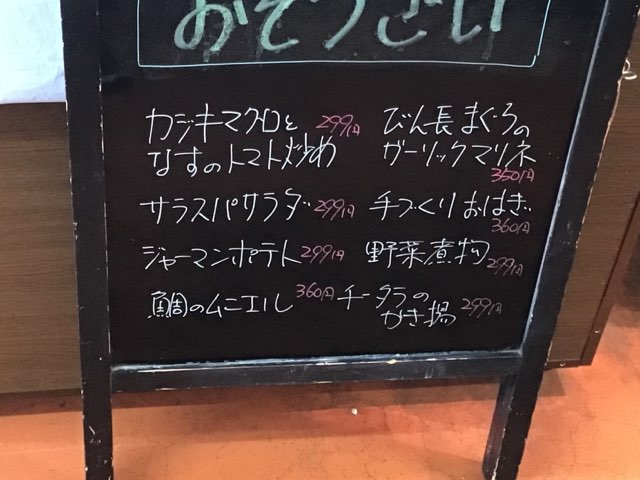 おそうざい
カジキマグロと 299円
なすのトマト炒め
サラスパサラダ 299円
ジャーマンポテト 299円
鯛のムニエル 360円
びん長まぐろの
ガーリックマリネ
360円
手づくりおはぎ
360円
野菜煮物 299円
チータラの
かき揚 299円